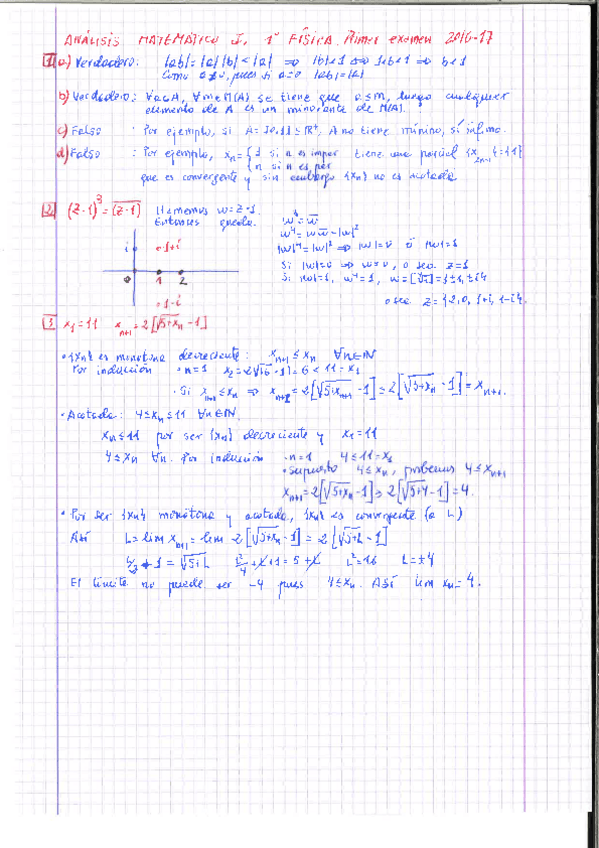 ANÁLISIS MATEMÁTICO I. 1º FÍSICA. Primer examen 2016-17
1 a) Verdadero: |ab|=|a||b|<|a| ⇒ |b|<1 ⇔ -1<b<1 ⇒ b<1
Como a≠0, pues si a=0 |ab|=|a|
b) Verdadero: ∀a∈A, ∀m∈M(A) se tiene que a≤m, luego cualquier
elemento de A es un minorante de M(A).
c) Falso : Por ejemplo, si A=]0,1]⊆R⁺, A no tiene mínimo, sí ínfimo.
d) Falso : Por ejemplo, xₙ={1 si n es impar tiene una parcial {x₂ₙ₋₁}={1}
{n si n es par
que es convergente y sin embargo {xₙ} no es acotada
2 (z-1)³=(z-1) Llamemos w=z-1.
Entonces queda.
w³=w̄
w⁴=w w̄=|w|²
|w|⁴=|w|² ⇒ |w|=0 ó |w|=1
Si |w|=0 ⇒ w=0, o sea z=1
Si |w|=1, w⁴=1, w=[⁴√1]={±1, ±i}
o sea z={2,0, 1+i, 1-i}.
i 1+i
0 1 2
1-i
3 x₁=11 xₙ₊₁=2[√(5+xₙ) -1]
• {xₙ} es monótona decreciente: xₙ₊₁≤xₙ ∀n∈N
Por inducción • n=1 x₂=2(√16 -1)=6<11=x₁
• Si xₙ₊₁≤xₙ ⇒ xₙ₊₂=2[√(5+xₙ₊₁) -1]≤2[√(5+xₙ) -1]=xₙ₊₁.
• Acotada: 4≤xₙ≤11 ∀n∈N.
xₙ≤11 por ser {xₙ} decreciente y x₁=11
4≤xₙ ∀n. Por inducción • n=1 4≤11=x₁
• supuesto 4≤xₙ, probemos 4≤xₙ₊₁
xₙ₊₁=2[√(5+xₙ) -1]≥2[√(5+4) -1]=4.
• Por ser {xₙ} monótona y acotada, {xₙ} es convergente (a L)
Así L=lim xₙ₊₁=lim 2[√(5+xₙ) -1]=2[√(5+L) -1]
L/2+1=√(5+L) L²/4+L+1=5+L L²=16 L=±4
El límite no puede ser -4 pues 4≤xₙ. Así lim xₙ=4.